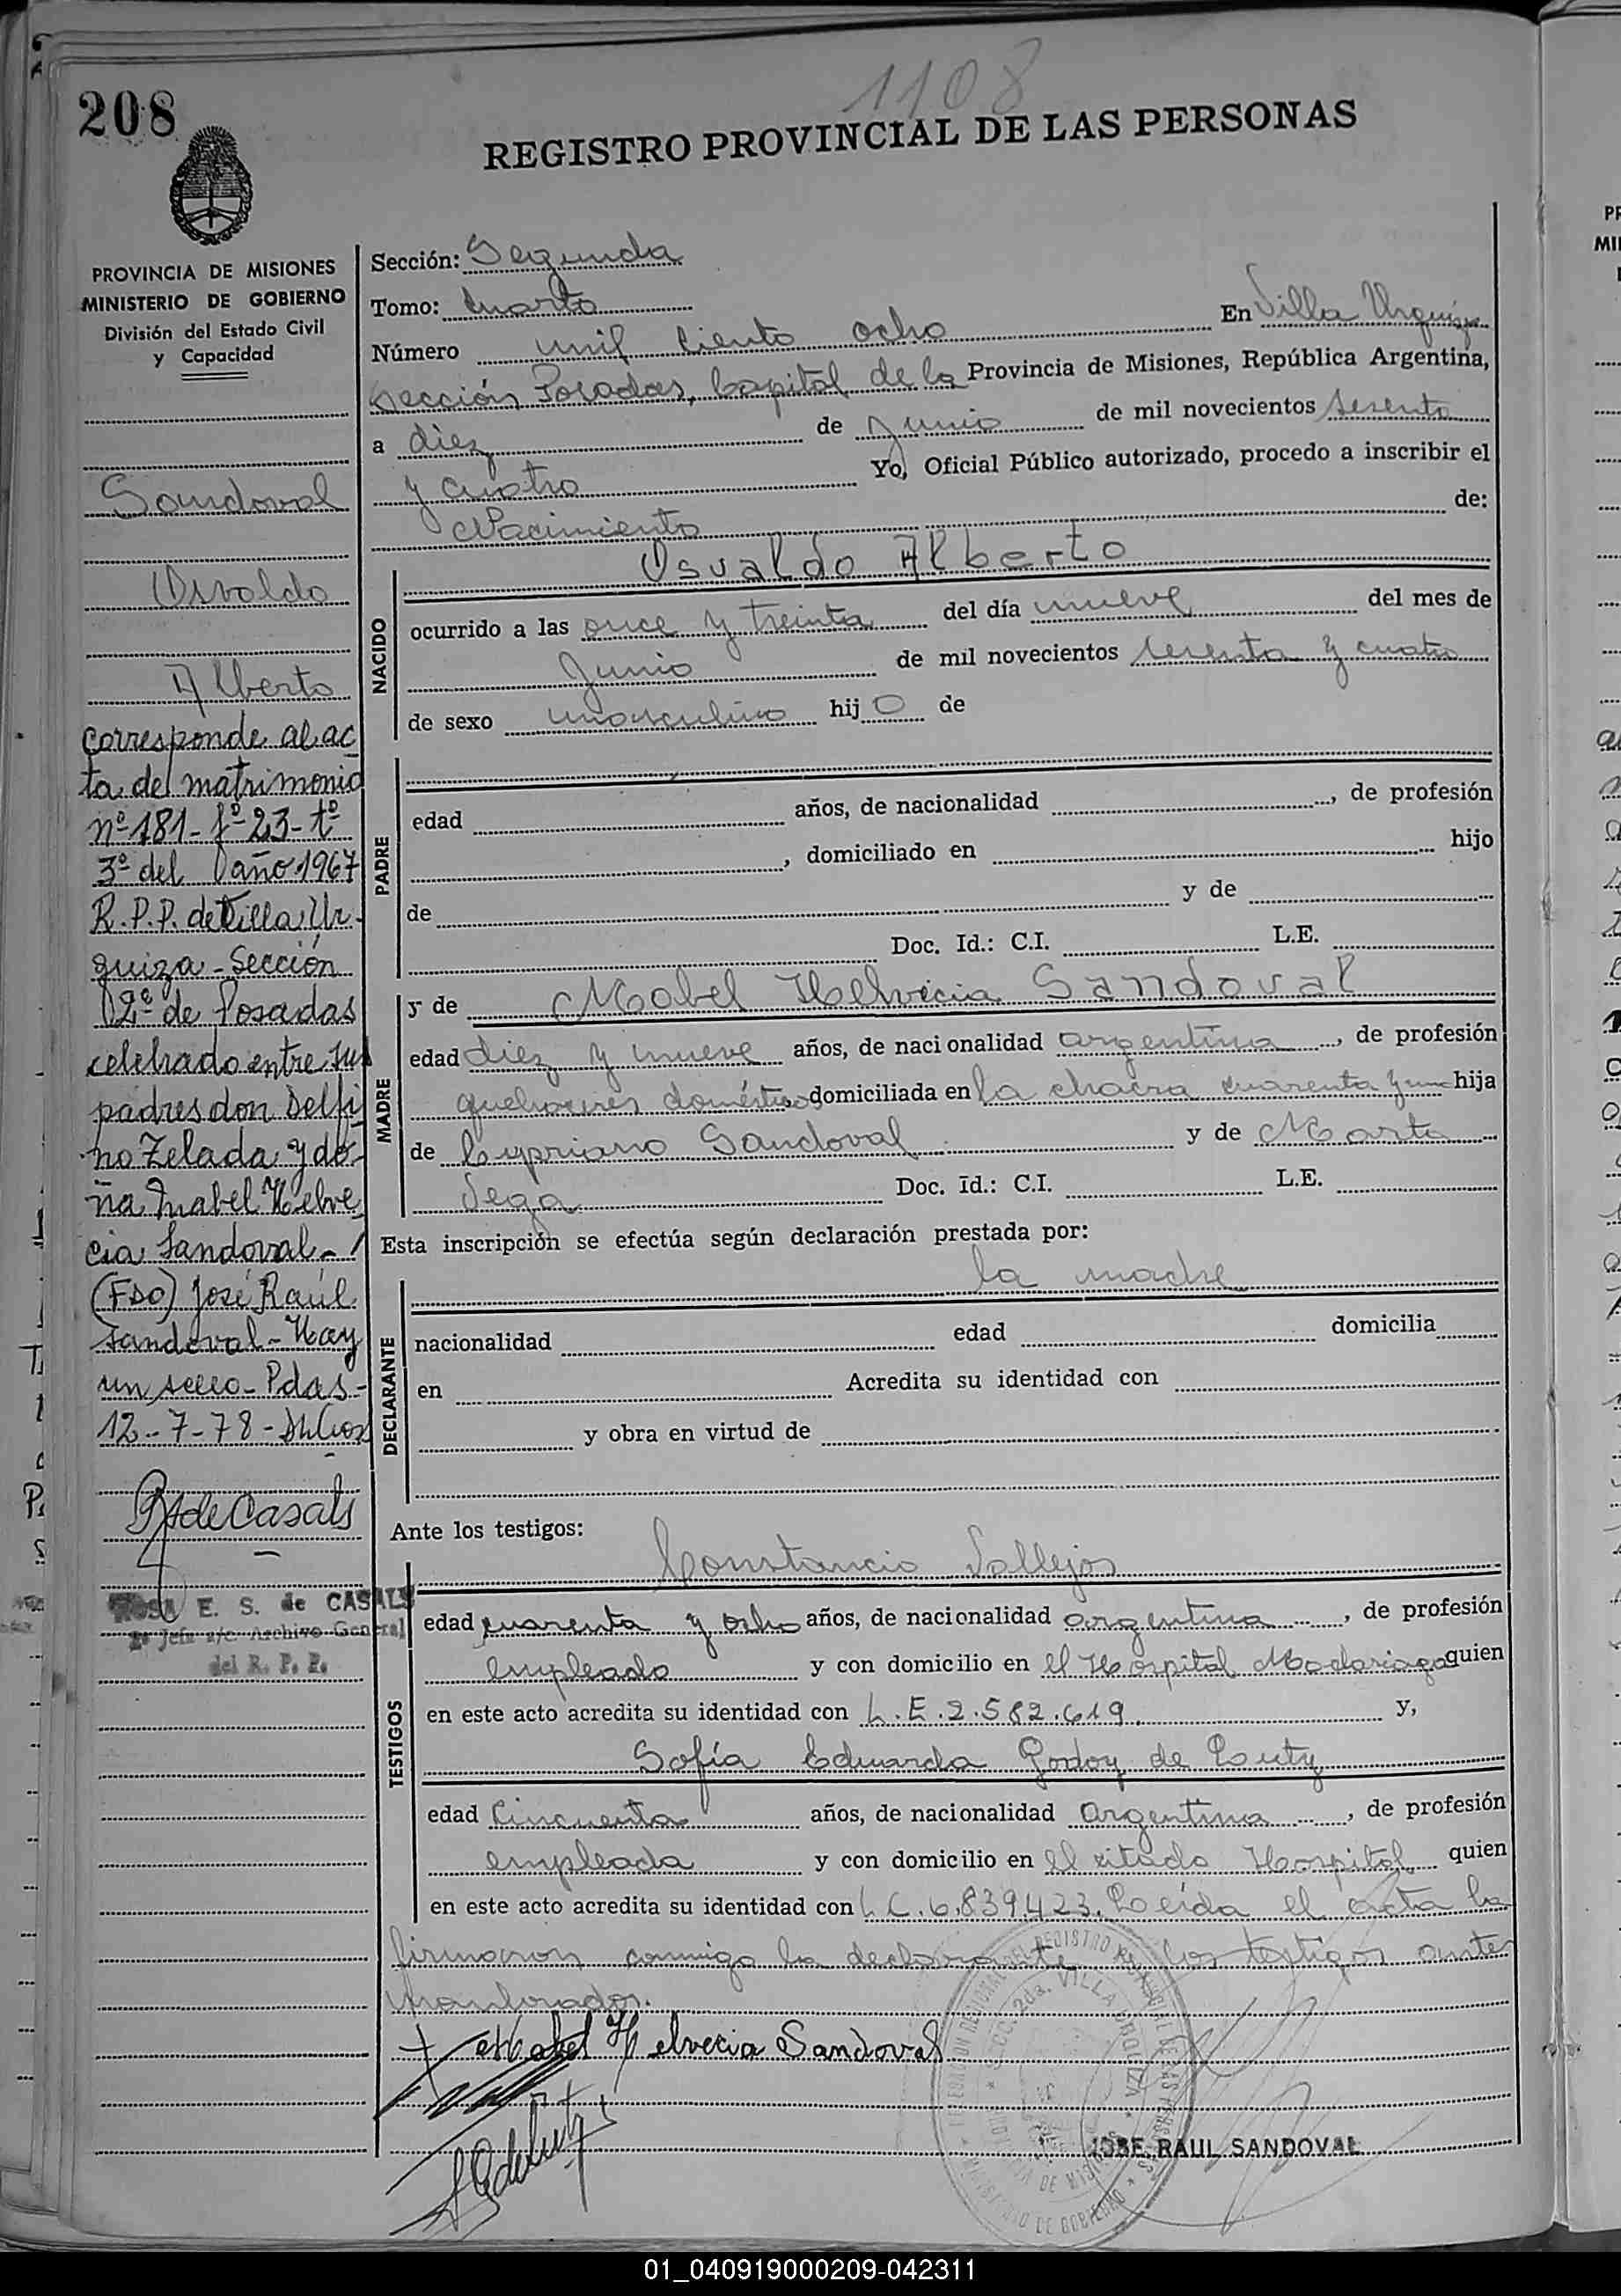 1108
208
REGISTRO PROVINCIAL DE LAS PERSONAS
PROVINCIA DE MISIONES
MINISTERIO DE GOBIERNO
División del Estado Civil
y Capacidad
Sandoval
Osvaldo
Alberto
corresponde al ac
ta de matrimonio
nº 181 - fº 23 - tº
3º del año 1967
R.P.P. de Villa Ur
quiza - Sección
2º de Posadas
celebrado entre sus
padres don Delfi
no Zelada y do
ña Mabel Helve
cia Sandoval -
(FDO) José Raúl
Sandoval - Hay
un sello - Pdas -
12-7-78 -
RdeCasals
ROSA E. S. de CASALS
2º Jefe a/c. Archivo General
del R. P. P.
Sección: Segunda
Tomo: Cuarto
Número mil ciento ocho En Villa Urquiza
Sección Posadas, Capital de la Provincia de Misiones, República Argentina,
a diez de Junio de mil novecientos sesenta
y cuatro Yo, Oficial Público autorizado, procedo a inscribir el
Nacimiento de:
NACIDO
Osvaldo Alberto
ocurrido a las once y treinta del día nueve del mes de
Junio de mil novecientos sesenta y cuatro
de sexo masculino hijo de
PADRE
edad años, de nacionalidad , de profesión
, domiciliado en hijo
de y de
Doc. Id.: C.I. L.E.
MADRE
y de Mabel Helvecia Sandoval
edad diez y nueve años, de nacionalidad argentina , de profesión
quehaceres domésticos domiciliada en la chacra cuarenta y uno hija
de Cypriano Sandoval y de Marta
Vega Doc. Id.: C.I. L.E.
Esta inscripción se efectúa según declaración prestada por:
la madre
DECLARANTE
nacionalidad edad domicilia
en Acredita su identidad con
y obra en virtud de
Ante los testigos:
TESTIGOS
Constancio Vallejos
edad cuarenta y ocho años, de nacionalidad argentina , de profesión
empleado y con domicilio en el Hospital Madariaga quien
en este acto acredita su identidad con L.E.2.582.619 y,
Sofía Eduarda Godoy de Luty
edad cincuenta años, de nacionalidad argentina , de profesión
empleada y con domicilio en el citado Hospital quien
en este acto acredita su identidad con L.C.6.839.423. Leída el acta la
firmaron conmigo la declarante los testigos ante
mencionados.
Mabel Helvecia Sandoval
JOSE RAUL SANDOVAL
01_040919000209-042311